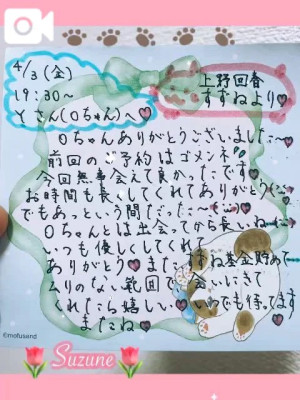 4/3(金)
19:30〜
Yさん(Oちゃん)へ♡
上野回春
すずねより♡
Oちゃんありがとうございました〜♡
前回のご予約はゴメンネ
今回無事会えて良かったです♡
お時間も長くしてくれてありがとう
でもあっという間だった〜
Oちゃんとは出会ってから長いね
いつも優しくしてくれて
ありがとう♡また、すずね基金貯めて
ムリのない範囲で会いにきて
くれたら嬉しい♡いつでも待ってます
またね♡
©mofusand
Suzune